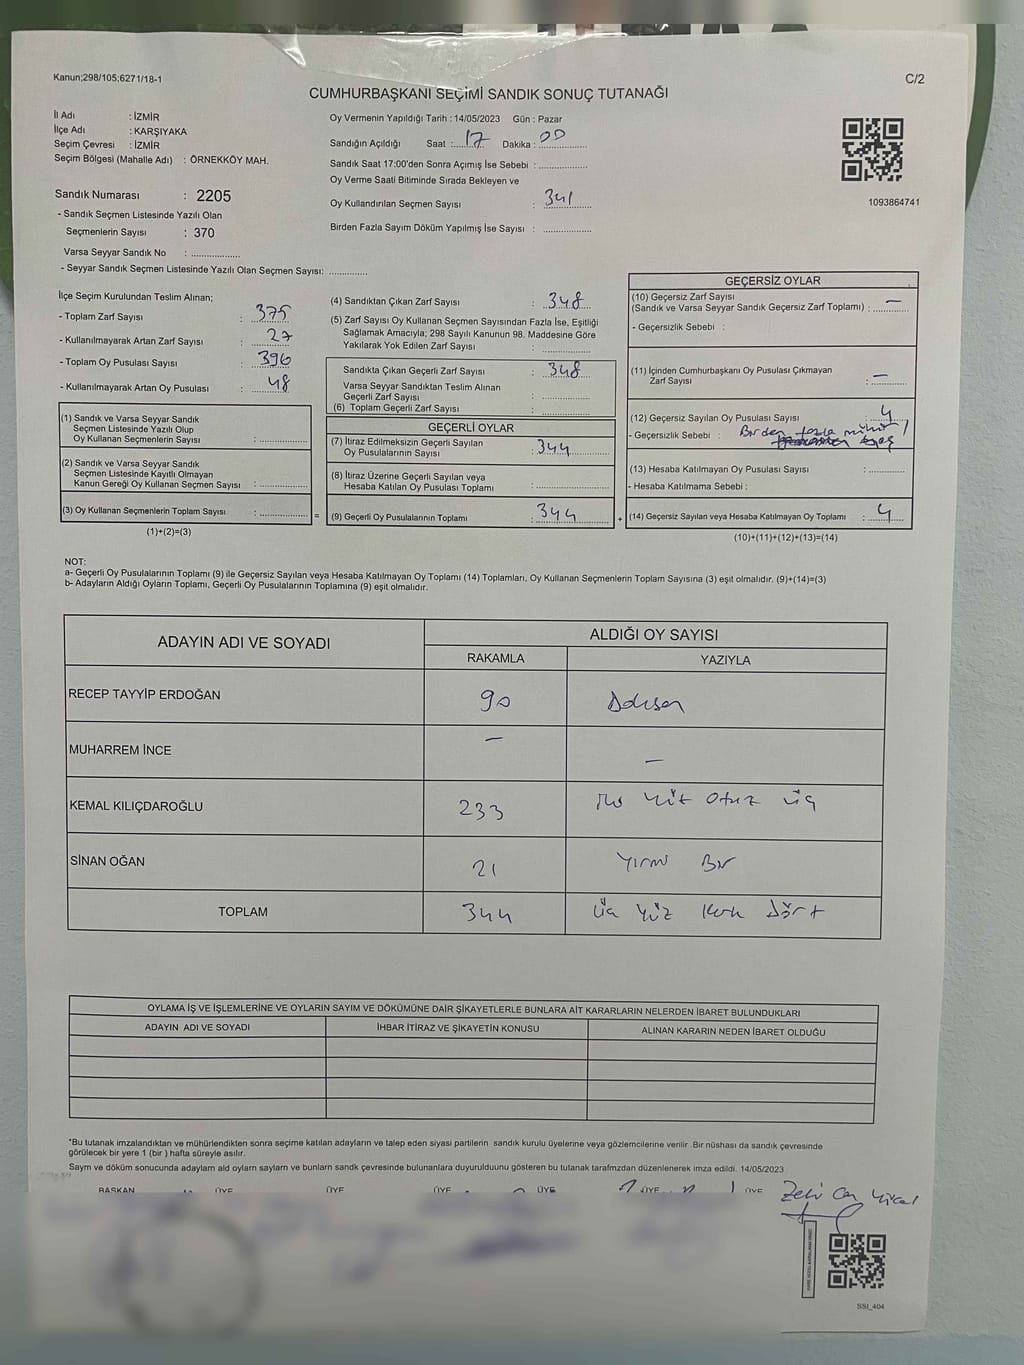 Kanun;298/105;6271/18-1
C/2
CUMHURBAŞKANI SEÇİMİ SANDIK SONUÇ TUTANAĞI
İl Adı : İZMİR
İlçe Adı : KARŞIYAKA
Seçim Çevresi : İZMİR
Seçim Bölgesi (Mahalle Adı) : ÖRNEKKÖY MAH.
Sandık Numarası : 2205
- Sandık Seçmen Listesinde Yazılı Olan
Seçmenlerin Sayısı : 370
Varsa Seyyar Sandık No : ..................
- Seyyar Sandık Seçmen Listesinde Yazılı Olan Seçmen Sayısı: ..............
Oy Vermenin Yapıldığı Tarih : 14/05/2023 Gün : Pazar
Sandığın Açıldığı Saat : 17 Dakika : 00
Sandık Saat 17:00'den Sonra Açımış İse Sebebi : ..................
Oy Verme Saati Bitiminde Sırada Bekleyen ve
Oy Kullandırılan Seçmen Sayısı : 341
Birden Fazla Sayım Döküm Yapılmış İse Sayısı : ..................
1093864741
İlçe Seçim Kurulundan Teslim Alınan;
- Toplam Zarf Sayısı : 375
- Kullanılmayarak Artan Zarf Sayısı : 27
- Toplam Oy Pusulası Sayısı : 396
- Kullanılmayarak Artan Oy Pusulası : 48
(1) Sandık ve Varsa Seyyar Sandık
Seçmen Listesinde Yazılı Olup
Oy Kullanan Seçmenlerin Sayısı : ..................
(2) Sandık ve Varsa Seyyar Sandık
Seçmen Listesinde Kayıtlı Olmayan
Kanun Gereği Oy Kullanan Seçmen Sayısı : ..................
(3) Oy Kullanan Seçmenlerin Toplam Sayısı : .................. =
(1)+(2)=(3)
(4) Sandıktan Çıkan Zarf Sayısı : 348
(5) Zarf Sayısı Oy Kullanan Seçmen Sayısından Fazla İse, Eşitliği
Sağlamak Amacıyla; 298 Sayılı Kanunun 98. Maddesine Göre
Yakılarak Yok Edilen Zarf Sayısı : ..................
Sandıkta Çıkan Geçerli Zarf Sayısı : 348
Varsa Seyyar Sandıktan Teslim Alınan
Geçerli Zarf Sayısı : ..................
(6) Toplam Geçerli Zarf Sayısı : ..................
GEÇERLİ OYLAR
(7) İtiraz Edilmeksizin Geçerli Sayılan
Oy Pusulalarının Sayısı : 344
(8) İtiraz Üzerine Geçerli Sayılan veya
Hesaba Katılan Oy Pusulası Toplamı : ..................
(9) Geçerli Oy Pusulalarının Toplamı : 344 +
GEÇERSİZ OYLAR
(10) Geçersiz Zarf Sayısı
(Sandık ve Varsa Seyyar Sandık Geçersiz Zarf Toplamı) : —
- Geçersizlik Sebebi :
(11) İçinden Cumhurbaşkanı Oy Pusulası Çıkmayan
Zarf Sayısı : —
(12) Geçersiz Sayılan Oy Pusulası Sayısı : 4
- Geçersizlik Sebebi : Birden fazla mühür
(13) Hesaba Katılmayan Oy Pusulası Sayısı : ..........
- Hesaba Katılmama Sebebi :
(14) Geçersiz Sayılan veya Hesaba Katılmayan Oy Toplamı : 4
(10)+(11)+(12)+(13)=(14)
NOT:
a- Geçerli Oy Pusulalarının Toplamı (9) ile Geçersiz Sayılan veya Hesaba Katılmayan Oy Toplamı (14) Toplamları, Oy Kullanan Seçmenlerin Toplam Sayısına (3) eşit olmalıdır. (9)+(14)=(3)
b- Adayların Aldığı Oyların Toplamı, Geçerli Oy Pusulalarının Toplamına (9) eşit olmalıdır.
ADAYIN ADI VE SOYADI ALDIĞI OY SAYISI
RAKAMLA YAZIYLA
RECEP TAYYİP ERDOĞAN 90 Doksan
MUHARREM İNCE — —
KEMAL KILIÇDAROĞLU 233 İki yüz otuz üç
SİNAN OĞAN 21 Yirmi Bir
TOPLAM 344 Üç Yüz Kırk Dört
OYLAMA İŞ VE İŞLEMLERİNE VE OYLARIN SAYIM VE DÖKÜMÜNE DAİR ŞİKAYETLERLE BUNLARA AİT KARARLARIN NELERDEN İBARET BULUNDUKLARI
ADAYIN ADI VE SOYADI İHBAR İTİRAZ VE ŞİKAYETİN KONUSU ALINAN KARARIN NEDEN İBARET OLDUĞU
*Bu tutanak imzalandıktan ve mühürlendikten sonra seçime katılan adayların ve talep eden siyasi partilerin sandık kurulu üyelerine veya gözlemcilerine verilir .Bir nüshası da sandık çevresinde
görülecek bir yere 1 (bir ) hafta süreyle asılır.
Saym ve döküm sonucunda adaylarn ald oylarn saylarn ve bunlarn sandk çevresinde bulunanlara duyurulduunu gösteren bu tutanak tarafmzdan düzenlenerek imza edildi. 14/05/2023
BAŞKAN ÜYE ÜYE ÜYE ÜYE ÜYE ÜYE
Zeki Can
SSI_404